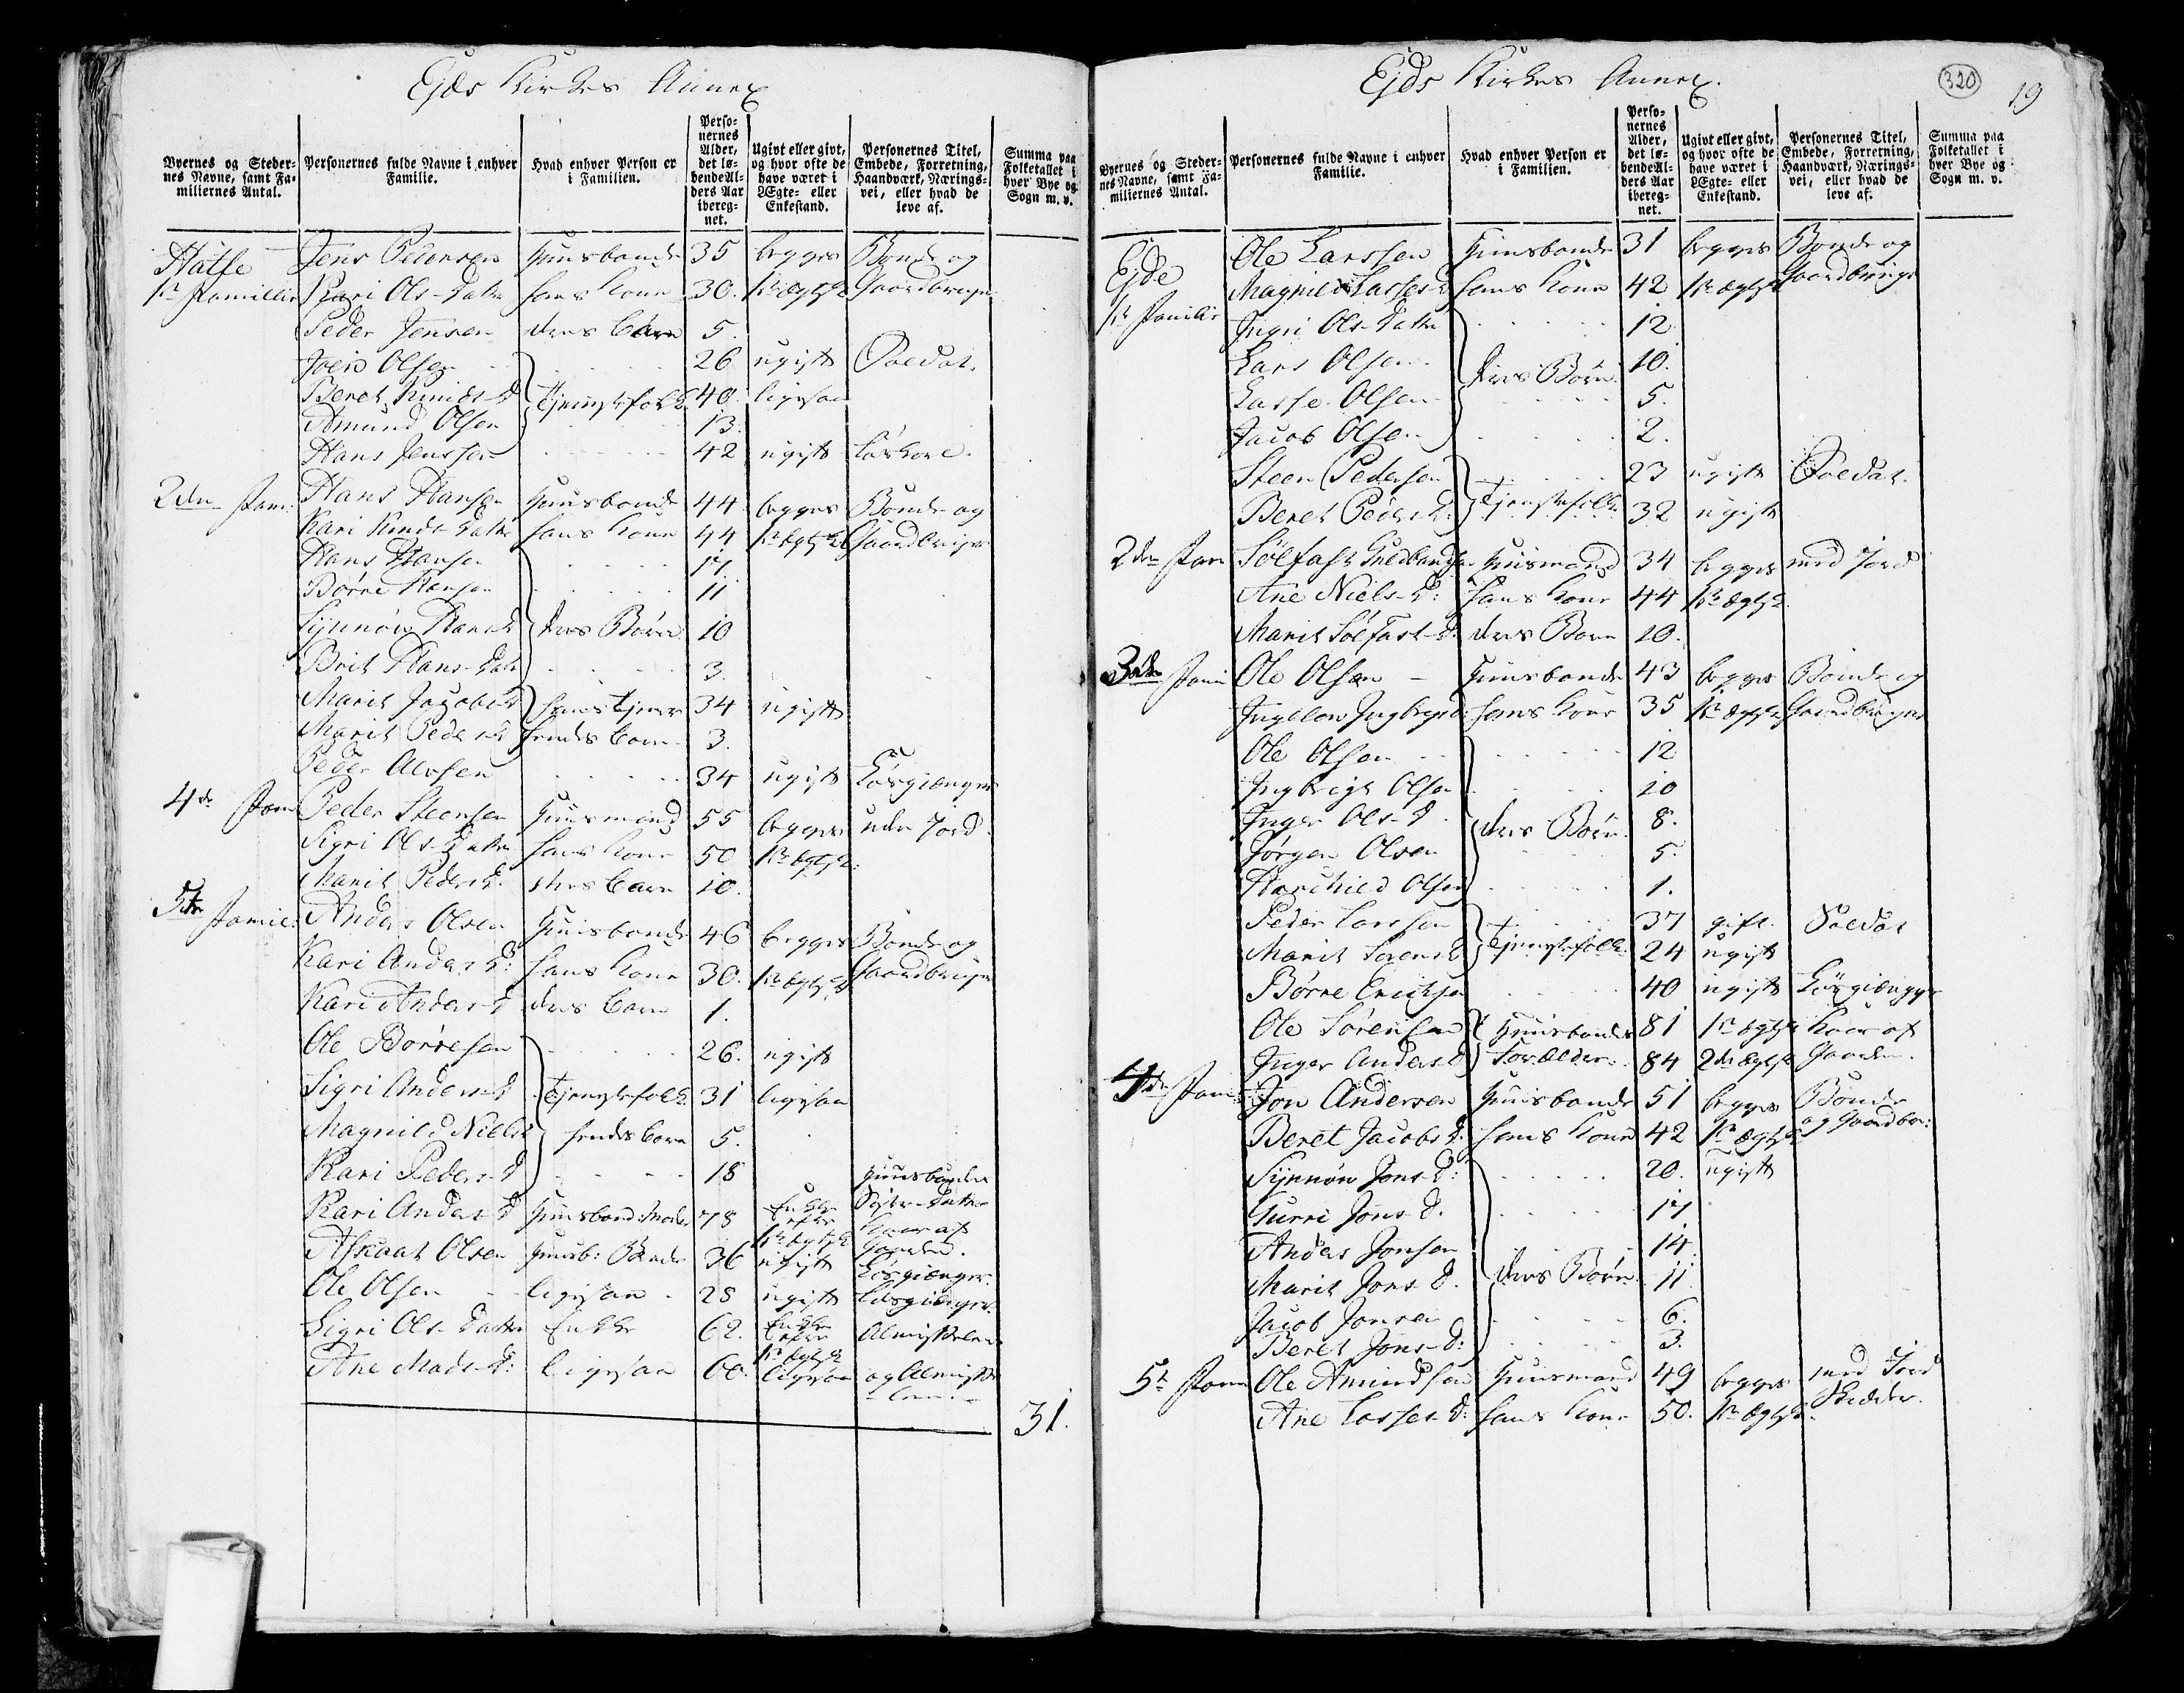 Ejds Kirkes Annex
Byernes og Steder-
nes Navne, samt Fa-
miliernes Antal.
Personernes fulde Navne i enhver
Familie.
Hvad enhver Person er
i Familien.
Perso-
nernes
Alder,
det lø-
bende Al-
ders Aar
ibereg-
net.
Ugivt eller givt,
og hvor ofte de
have været i
Ægte- eller
Enkestand.
Personernes Titel,
Embede, Forretning,
Haandværk, Nærings-
vei, eller hvad de
leve af.
Summa paa
Folketallet i
hver Bye og
Sogn m. v.
Jens Pedersen Huusbonde 35 begges Bonde og
1ste Familie Kari Ols-datter hans Kone 30. 1ste Ægtsk. Gaardbruger
Peder Jensen deres Barn 5.
Joen Olsen 26 ugift Soldat.
Beret Knuds-D Tjenistefolk 40 ligesaa
Amund Olsen 13.
Hans Jenssen 42 ugift
2den Fam: Hans Hansen Huusbonde 44 begges Bonde og
Kari Knuds datter hans Kone 44 1ste Ægtsk Gaardbruger
Hans Hansen 17
Børre Hansen 11
Synnøv Hans-D deres Børn 10
Brit Hans-datter 3.
Marit Jacobs-D hans Tjener 34 ugift
Marit Peders-D hendes Barn 3.
Peder 34 ugift Løsgiænger
4de Fam Peder Steensen Huusmand 55 begges uden Jord.
Sigri Ols-datter hans Kone 50 1ste Ægtsk:
Marit Peders-D. deres Barn 10.
5te Famil: Anders Olsen Huusbonde 46 begges Bonde og
Kari Anders-D: hans Kone 30. 1ste Ægtsk Gaardbruger
Kari Anders-D deres Barn 1.
Ole Børresen 26. ugift
Sigri Anders-D Tjenistefolk 31 ligesaa
Magnild Niels-D hendes Barn 5.
Kari Peders-D 18 Huusbondens
Søster-datter
Kari Anders-D Huusbond: Moder 78 Enke
efter
1ste Ægtsk Kaar af
Gaarden.
Olsen Huusb: 36 ugift Løsgiænger.
Ole Olsen ligesaa 28 ugift Løsgiænger.
Sigri Ols-datter Enke 62. Enke
efter
1ste Ægtsk Almisselem
Ane Mads-D: ligesaa 60. ligesaa og Almisse-
lem.
31.
Ejds Kirkes Annex.
320
19
Byernes og Steder-
nes Navne, samt Fa-
miliernes Antal.
Personernes fulde Navne i enhver
Familie.
Hvad enhver Person er
i Familien.
Perso-
nernes
Alder,
det lø-
bende Al-
ders Aar
ibereg-
net.
Ugivt eller givt,
og hvor ofte de
have været i
Ægte- eller
Enkestand.
Personernes Titel,
Embede, Forretning,
Haandværk, Nærings-
vei, eller hvad de
leve af.
Summa paa
Folketallet i
hver Bye og
Sogn m. v.
Ejde Ole Larssen Huusbonde 31 begges Bonde og
1ste Familie Magnild Lasses-D hans Kone 42 1ste Ægtsk Gaardbruger
Ingri Ols-datter 12
Lars Olsen 10.
deres Børn
Lasse Olsen 5.
Jacob Olsen 2.
Steen Pedersen 23 ugift Soldat.
Beret Peders-D: Tjenistefolk 32 ugift
2den Fam Sølfast Guldbrandsen Huusmand 34 begges med Jord
Ane Niels-D: hans Kone 44 1ste Ægtsk.
Marit Sølfast-D. deres Barn 10.
3die Fami Ole Olsen Huusbonde 43 begges Bonde og
hans Kone 35 1ste Ægtsk Gaardbruger
Ole Olsen 12
Ingbrigt Olsen 10
Inger Ols-D deres Børn 8.
Jørgen Olsen 5.
Olsen 1.
Peder Larssen 37 gift. Soldat
Marit Tjenistefolk 24 ugift
Børre Ericksen 40 ugift Løsgiænger
Ole Sørensen Huusbondes 81 1ste Ægtsk Kaar af
Inger Anders-D Forældre 84 2det Ægtsk Gaarden.
4de Fam: Jon Andersen Huusbonde 51 begges Bonde
Beret Jacobs-D. hans Kone 42 1ste Ægtsk og Gaardbr:
Synnøv Jons-D: 20. ugift
Gurri Jons-D. 17
Anders Jonsen 14.
Marit Jons-D. deres Børn 11
Jacob Jonsen 6.
Beret Jons-D: 3.
5te Fam Ole Amundsen Huusmand 49 begges med Jord
Ane Lasses-D: hans Kone 50. 1ste Ægtsk.